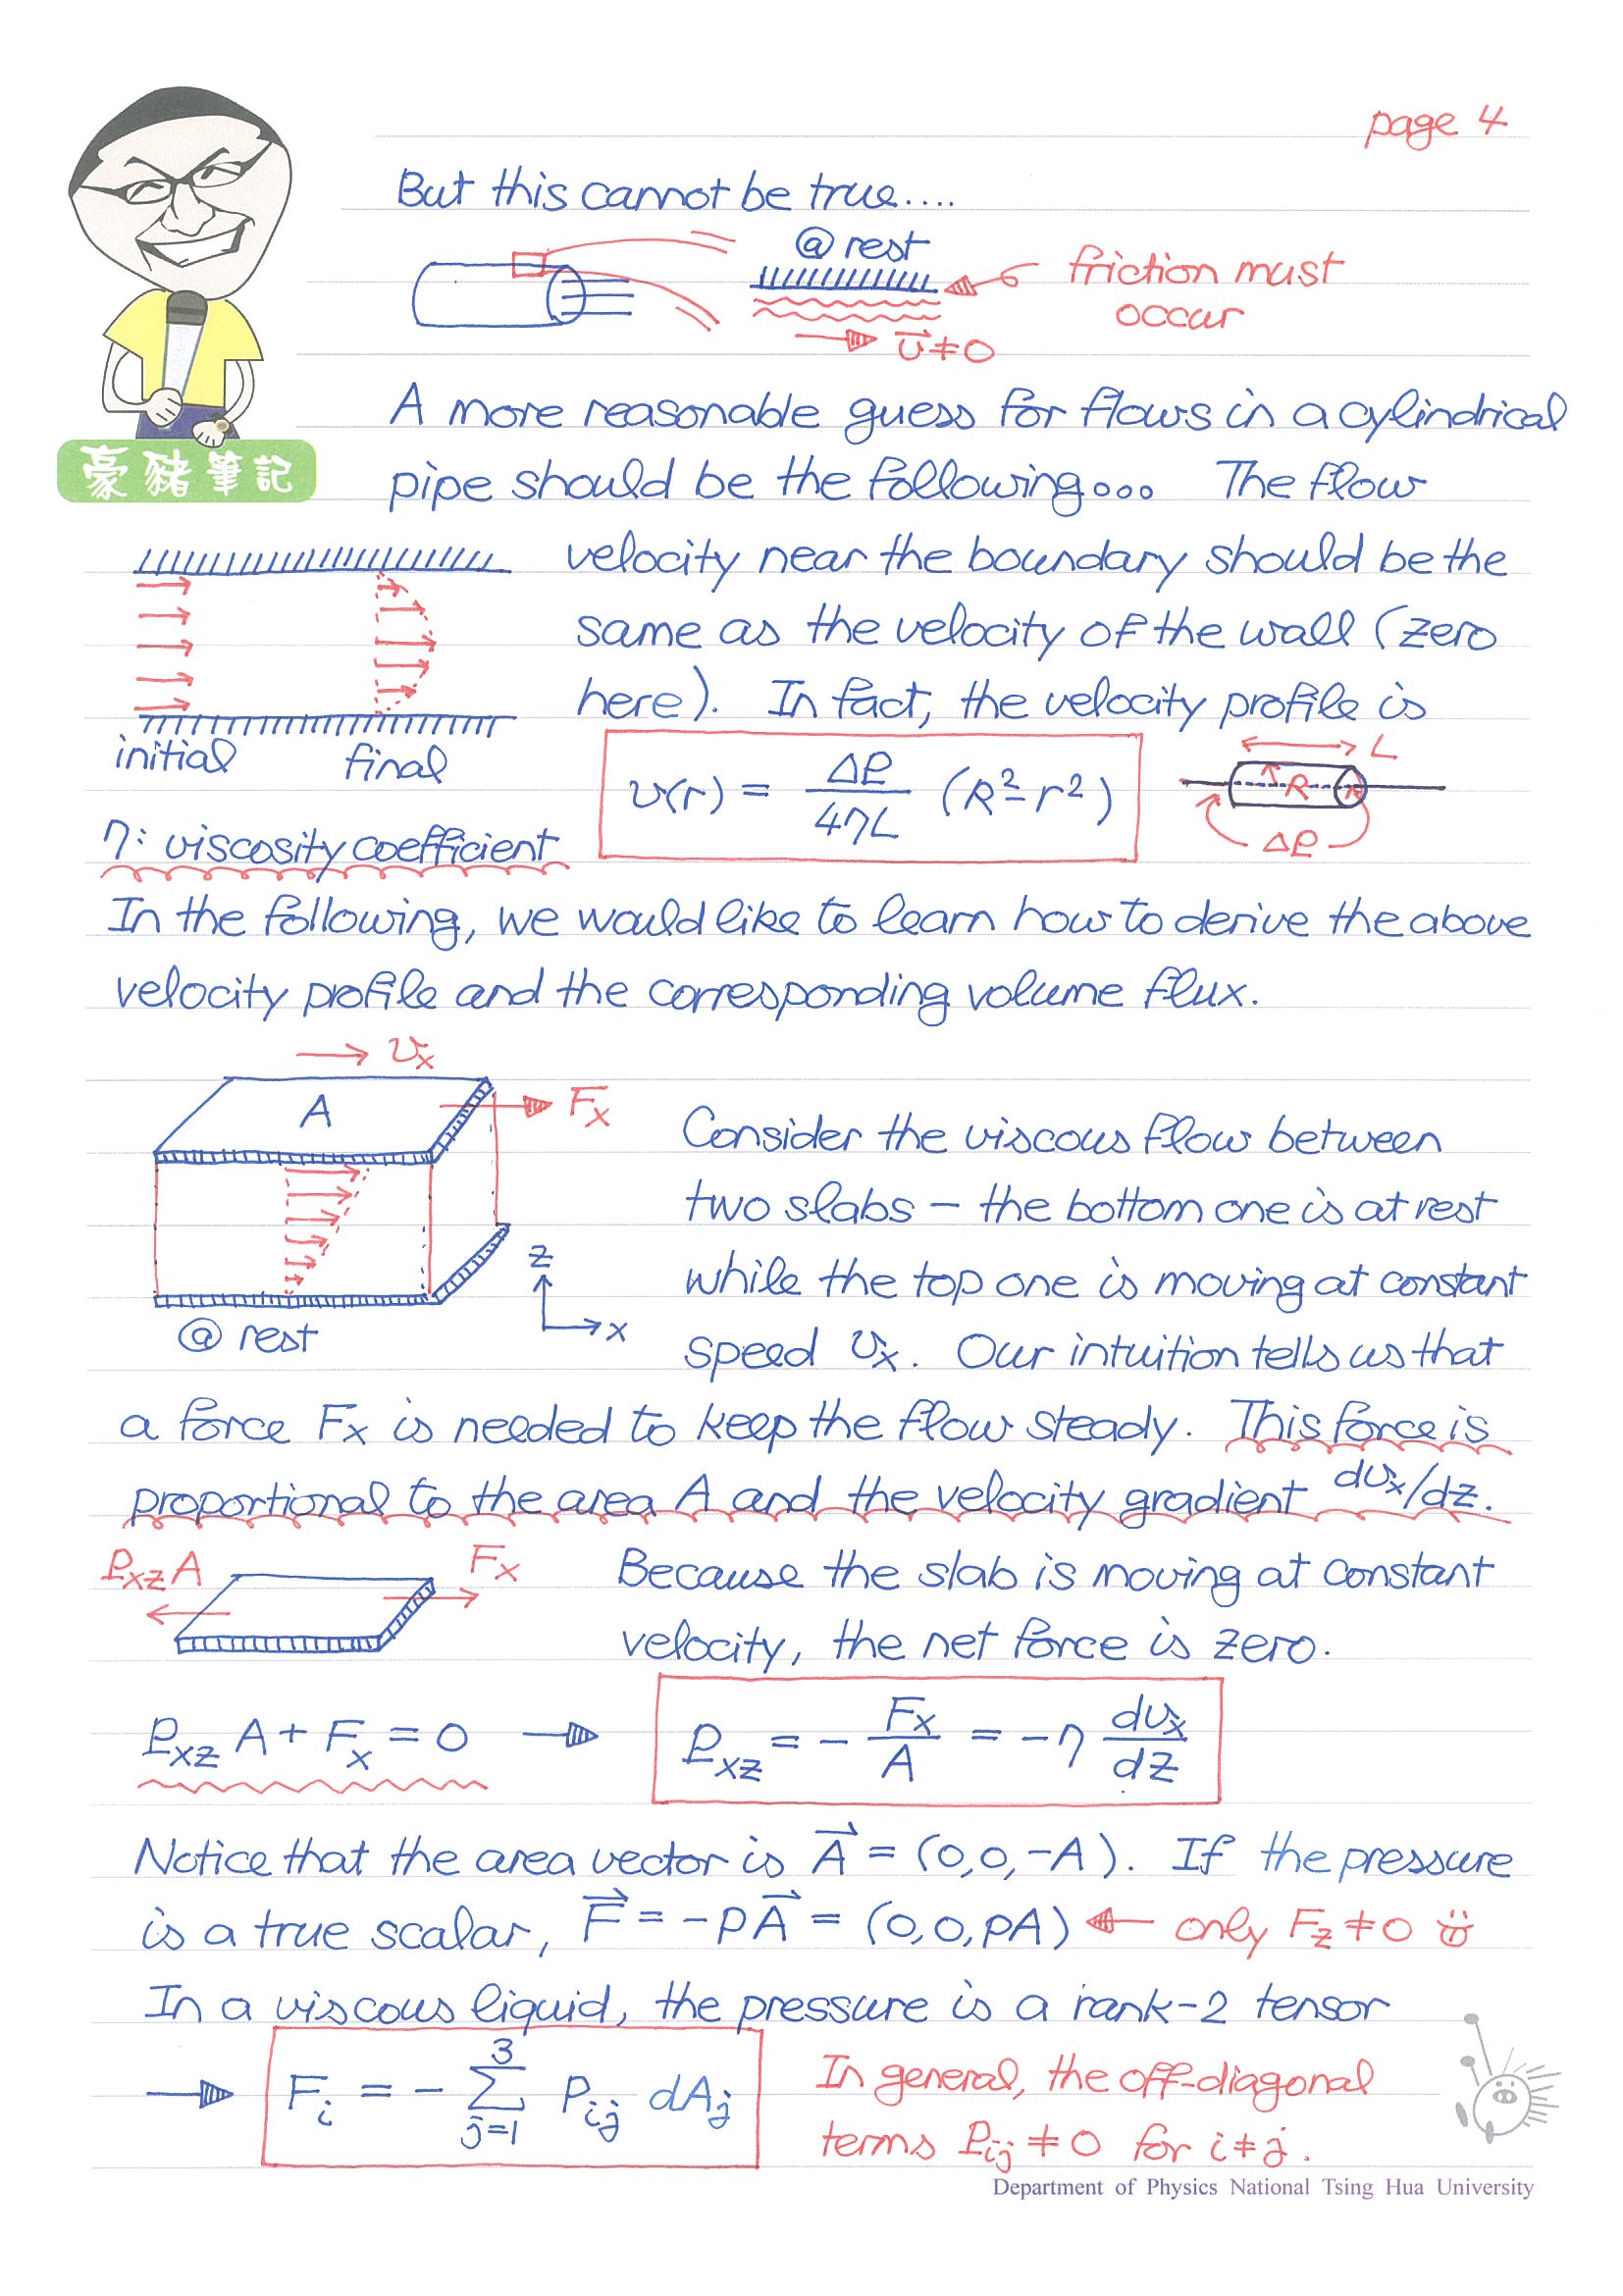 page 4
But this cannot be true....
@ rest
friction must
occur
v⃗≠0
豪豬筆記
A more reasonable guess for flows in a cylindrical
pipe should be the following... The flow
velocity near the boundary should be the
same as the velocity of the wall (zero
here). In fact, the velocity profile is
initial final
v(r) = ΔP/4ηL (R²-r²)
L
R
ΔP
η: viscosity coefficient
In the following, we would like to learn how to derive the above
velocity profile and the corresponding volume flux.
vₓ
A
Fₓ
@ rest
z
x
Consider the viscous flow between
two slabs – the bottom one is at rest
while the top one is moving at constant
speed vₓ. Our intuition tells us that
a force Fₓ is needed to keep the flow steady. This force is
proportional to the area A and the velocity gradient dvₓ/dz.
P_xz A
Fₓ
Because the slab is moving at constant
velocity, the net force is zero.
P_xz A + Fₓ = 0 → P_xz = - Fₓ/A = -η dvₓ/dz
Notice that the area vector is A⃗ = (0,0,-A). If the pressure
is a true scalar, F⃗ = -pA⃗ = (0,0,pA) ← only F_z ≠ 0
In a viscous liquid, the pressure is a rank-2 tensor
→ F_i = - ∑_{j=1}^{3} P_ij dA_j
In general, the off-diagonal
terms P_ij ≠ 0 for i≠j.
Department of Physics National Tsing Hua University